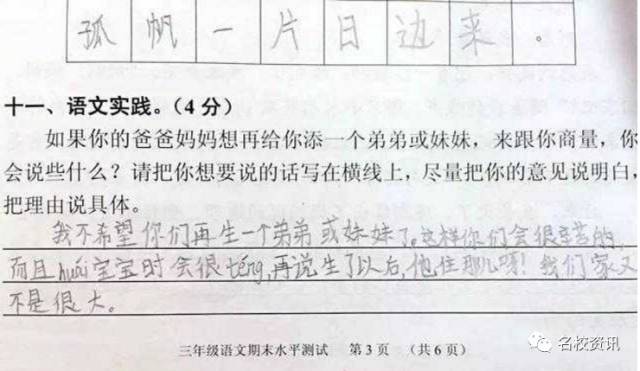 孤帆一片日边来。
十一、语文实践。（4分）
如果你的爸爸妈妈想再给你添一个弟弟或妹妹，来跟你商量，你
会说些什么？请把你想要说的话写在横线上，尽量把你的意见说明白，
把理由说具体。
我不希望你们再生一个弟弟或妹妹了。这样你们会很辛苦的，
而且huái宝宝时会很téng，再说生了以后，他住那儿呀！我们家又
不是很大。
三年级语文期末水平测试 第3页 （共6页）
名校资讯